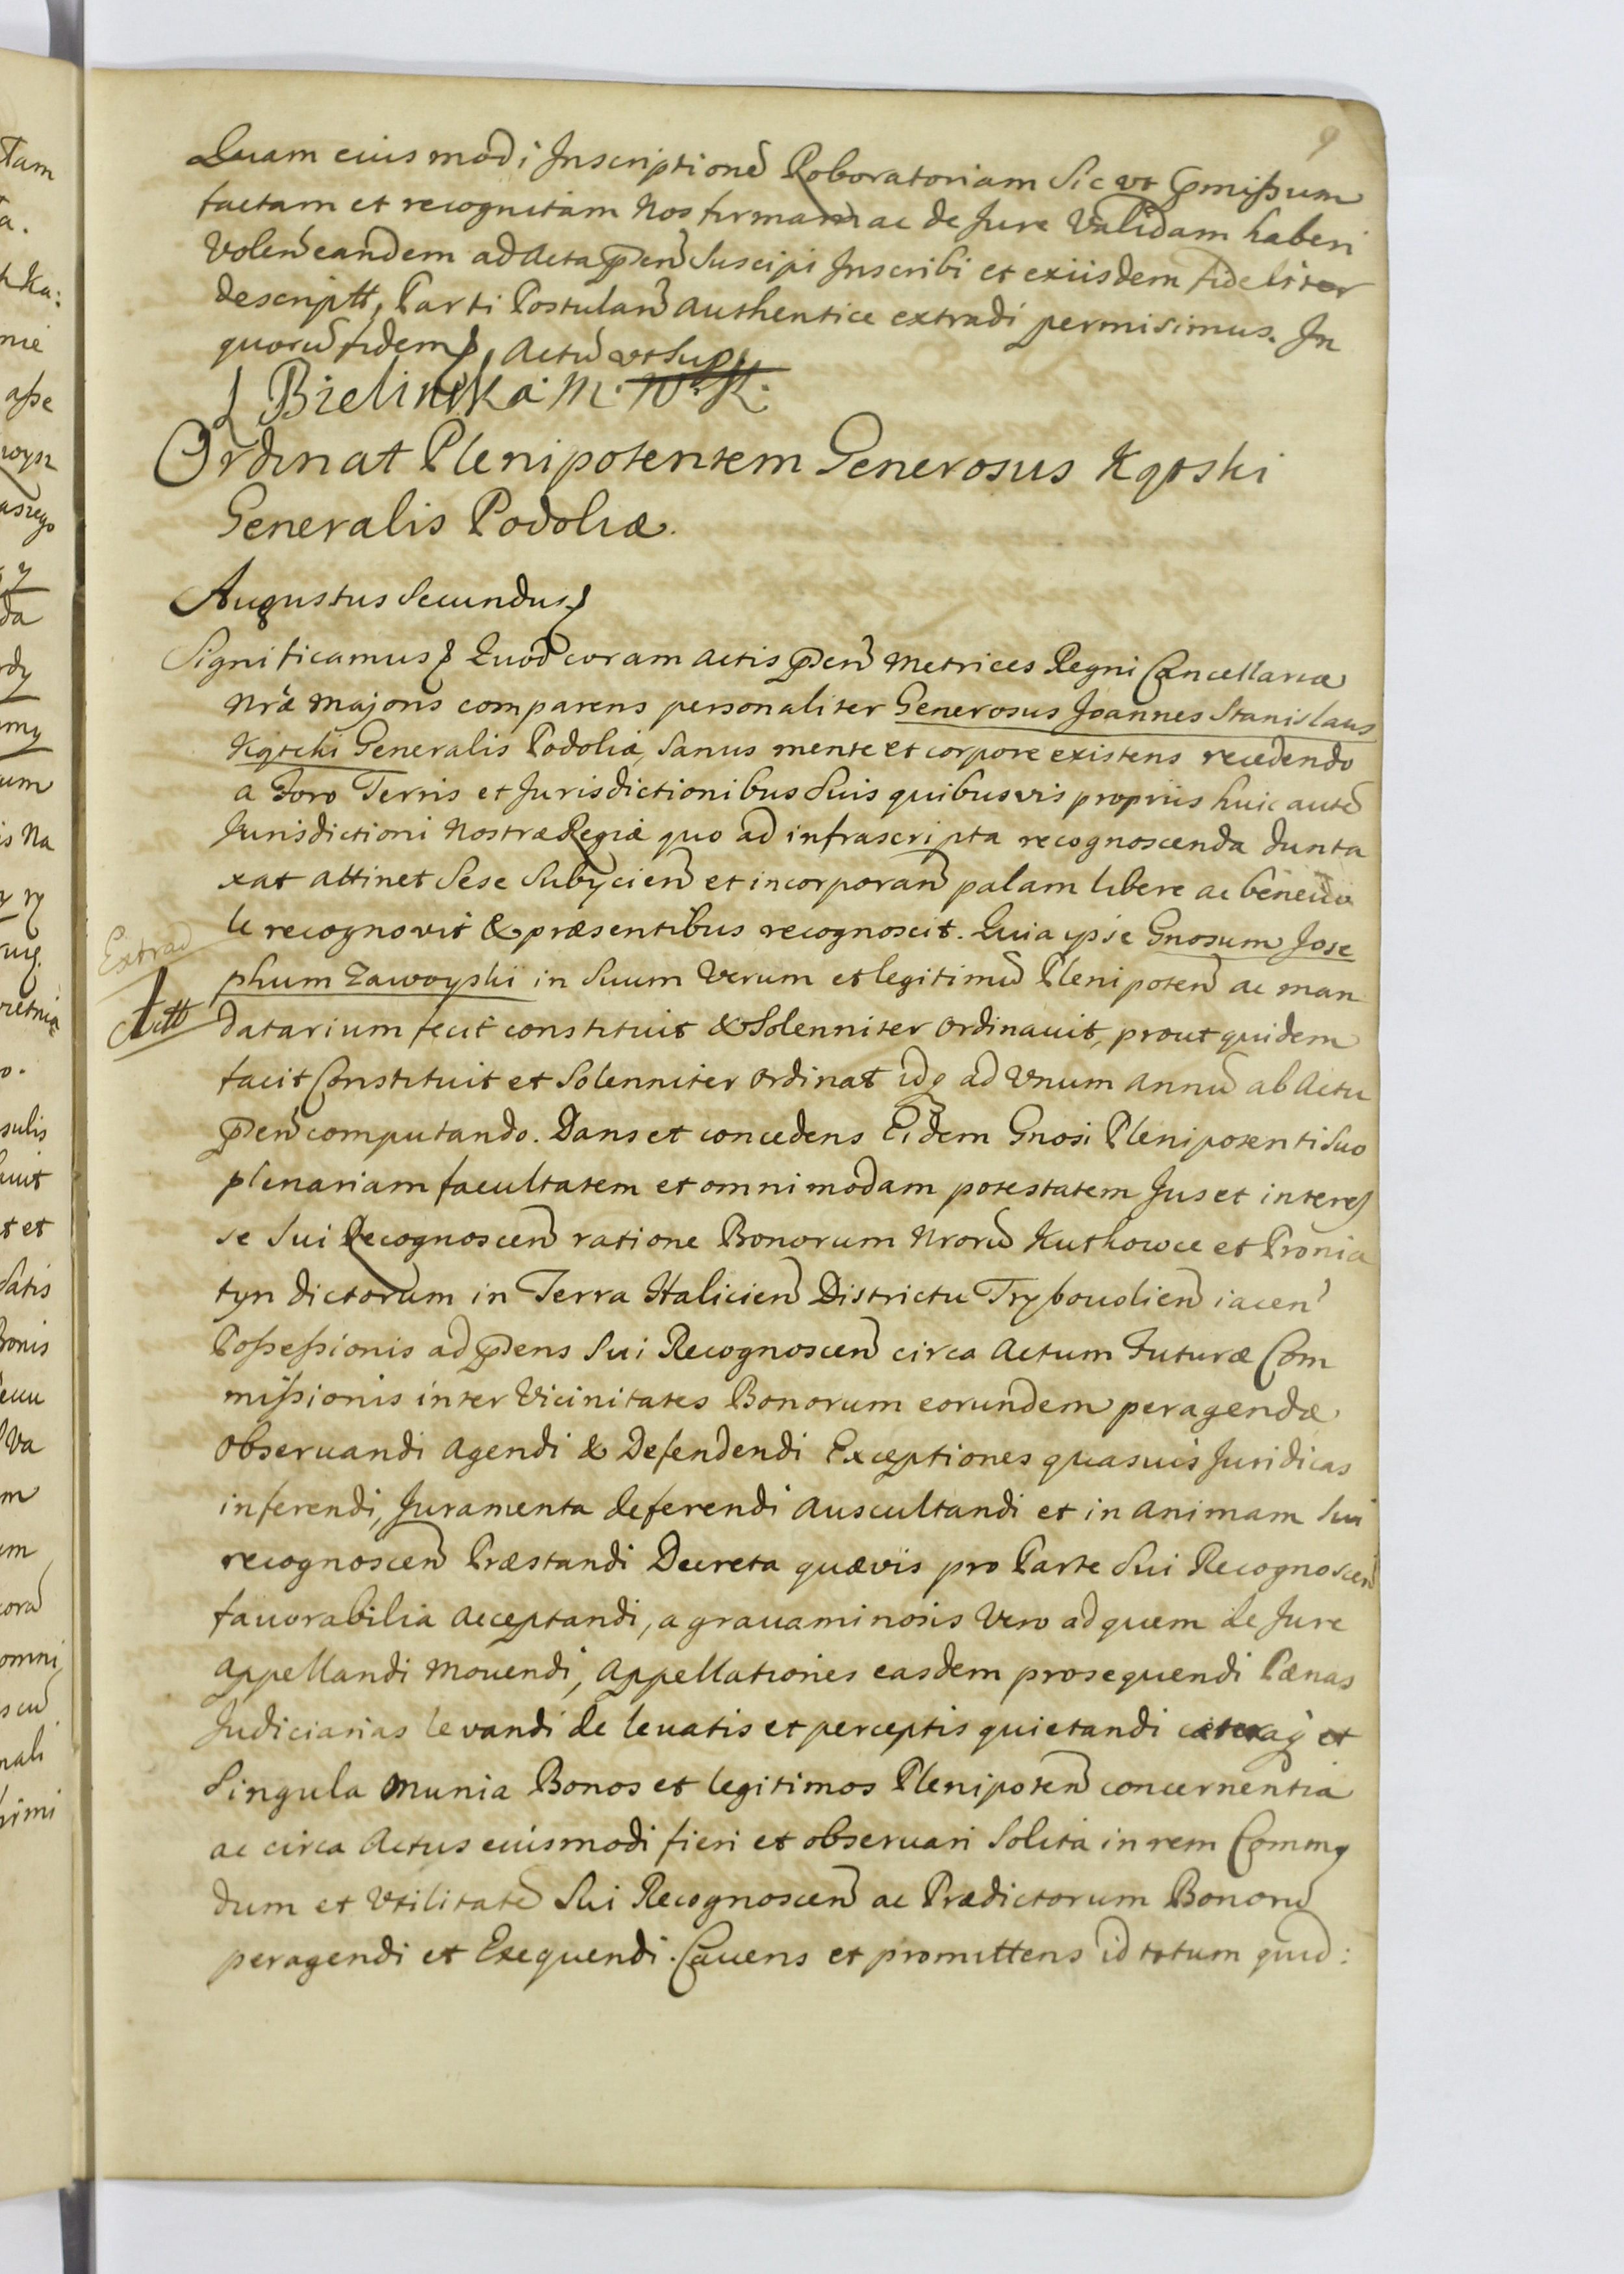 9
Quam eius modi Inscriptionē Roboratoriam Sic ut p̄mißum
factam et recognitam Nos firmam ac de Jure Validam haberi
Volen̄ eandem ad Acta p̄en̄ Suscipi Inscribi et exiisdem fideliter
descriptt, Parti Postulan̄ Authentice extradi permisimus. In
quorū fidem, Actū ut Supr
J Bielinska M. W. K.
Ordinat Plenipotentem Generosus Kątski
Generalis Podoliæ.
Augustus Secundus
Significamus Quod coram Actis p̄en̄ Metrices Regni Cancellariæ
Nr̄æ Majoris comparens personaliter Generosus Joannes Stanislaus
Kątski Generalis Podoliæ, Sanus mente et corpore existens recedendo
a Foro Terris et Jurisdictionibus Suis quibusvis propriis huic autē
Jurisdictioni Nostræ Regiæ quo ad infrascripta recognoscenda dunta
xat attinet Sese Subijcien̄ et incorporan̄ palam libere ac benevo
le recognovit & præsentibus recognoscit. Quia ipse Gnosum Jose
phum Zawoyski in Suum Verum et legitimū Plenipoten̄ ac man
datarium fecit constituit & Solenniter Ordinauit, prout quidem
facit Constituit et Solenniter Ordinat idq ad Vnum Annū ab Actu
p̄en̄ computando. Dans et concedens Eidem Gnosi Plenipotenti Suo
plenariam facultatem et omnimodam potestatem Jus et interes
se Sui Recognoscen̄ ratione Bonorum Nrorū Kutkowce et Pronia
tyn dictorum in Terra Halicien̄ Districtu Trybouolien̄ iacen̄
Poßeßionis ad p̄ens Sui Recognoscen̄ circa Actum Futuræ Com
mißionis inter Vicinitates Bonorum eorundem peragendæ
Obseruandi Agendi & Defendendi Exceptiones quasuis Juridicas
inferendi, Juramenta deferendi Auscultandi et in Animam Sui
recognoscen̄ Præstandi Decreta quævis pro Parte Sui Recognoscen̄
fauorabilia Acceptandi, a grauaminosis Vero ad quem de Jure
Appellandi Mouendi, Appellationes easdem prosequendi Pænas
Judiciarias levandi de leuatis et perceptis quietandi cæteraq̄ et
Singula Munia Bonos et legitimos Plenipoten̄ concernentia
ac circa Actus eiusmodi fieri et obseruari Solita in rem Commo
dum et Utilitatē Sui Recognoscen̄ ac Prædictorum Bonorū
peragendi et Exequendi. Cauens et promittens id totum quid:
Extrad